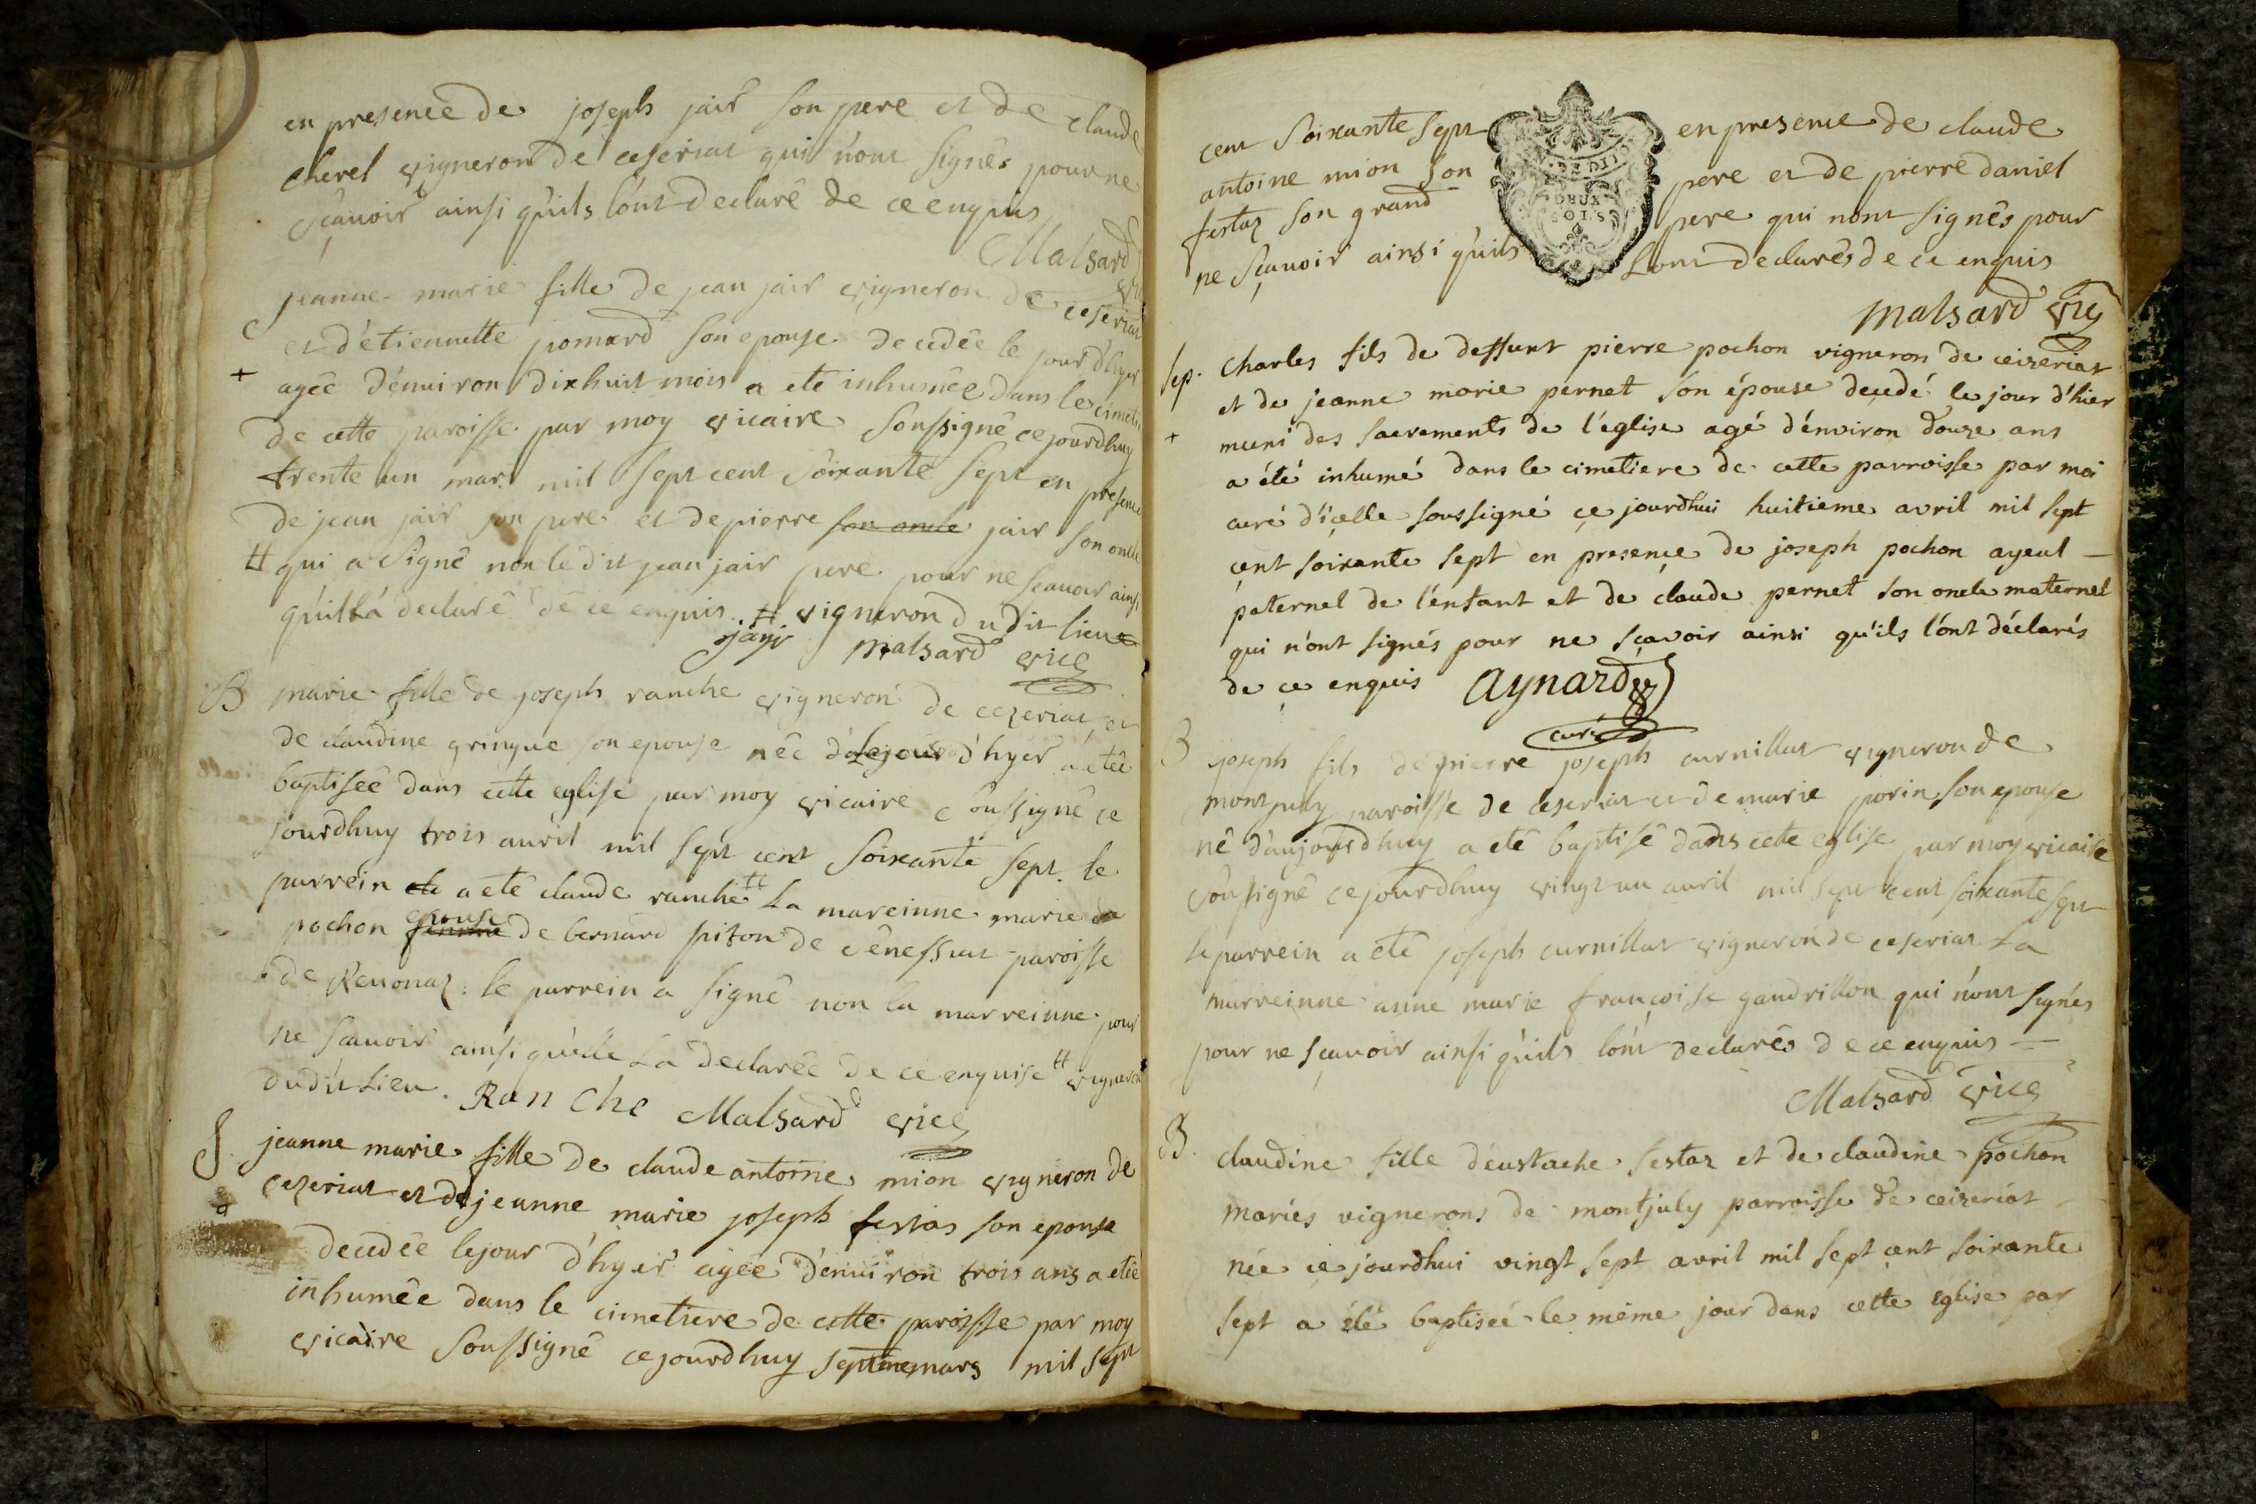 en presence de joseph jair son pere et de claude
cherel vigneron de ceseriat qui n'ont signés pour ne
sçavoir ainsi quils l'ont declaré de ce enquis
Malsard
jeanne marie fille de jean jair vigneron de ceseriat
et d'étiennette pomard son epouse decedée le jourd'hyer
+ agée d'environ dixhuit mois a eté inhumée dans le cimeti
de cette paroisse par moy vicaire soussigné cejourdhuy
trente un mars mil sept cent soixante sept en presence
de jean jair son pere et de pierre son oncle jair son oncle
# qui a signé non le dit jean jair pere pour ne scavoir ainsi
quil l'a declaré de ce enquis. # vigneron dudit lieu
jayr Malsard vic
B marie fille de joseph ranche vigneron de cezeriat et
de claudine gringue son epouse née le jour d'hyer a eté
baptisée dans cette eglise par moy vicaire soussigné ce
jourdhuy trois avril mil sept cent soixante sept. le
parrein a eté claude ranche # La mareinne marie
pochon femme epouse de bernard piton de cénessiat paroisse
de Revonaz. le parrein a signé non la marreinne pour
ne scavoir ainsi qu'elle La declarée de ce enquise # vigneron
dudit Lieu. Ran Che Malsard vic
S. jeanne marie fille de claude antoine mion vigneron de
cezeriat et de jeanne marie joseph festas son epouse
+ decedée lejour d'hyer agée d'environ trois ans a eté
inhumée dans le cimetiere de cette paroisse par moy
vicaire soussigné cejourdhuy septieme mars mil sept
cent soixante sept en presence de claude
antoine mion son pere et de pierre daniel
festaz son grand pere qui n'ont signés pour
ne sçavoir ainsi quils Lont declarés de ce enquis
DEUX
SOLS
malsard vic
sep. Charles fils de deffunt pierre pochon vigneron de ceizeriat
et de jeanne marie pernet son épouse decedé le jour d'hier
+ muni des sacrements de l'église agé d'environ douze ans
a été inhumé dans le cimetiere de cette parroisse par moi
curé d'icelle soussigné ce jourdhui huitieme avril mil sept
cent soixante sept en presence de joseph pochon ayeul —
paternel de l'enfant et de claude pernet son oncle maternel
qui n'ont signés pour ne sçavoir ainsi qu'ils l'ont déclarés
de ce enquis Aynard
curé
B joseph fils de pierre joseph curnillat vigneron de
montjuly paroisse de ceseriat et de marie porin son epouse
né d'aujourdhuy a eté baptisé dans cette eglise par moy vicaire
soussigné cejourdhuy vingt un avril mil sept cent soixante sept
le parrein a eté joseph curnillat vigneron de ceseriat La
marreinne anne marie françoise gaudrillon qui n'ont signés
pour ne sçavoir ainsi quils l'ont declarés de ce enquis —
Malsard vic
B. claudine fille d'eustache festaz et de claudine pochon
mariés vignerons de montjuly parroisse de ceizeriat
née ce jourdhui vingt sept avril mil sept cent soixante
sept a été baptisée le même jour dans cette eglise par